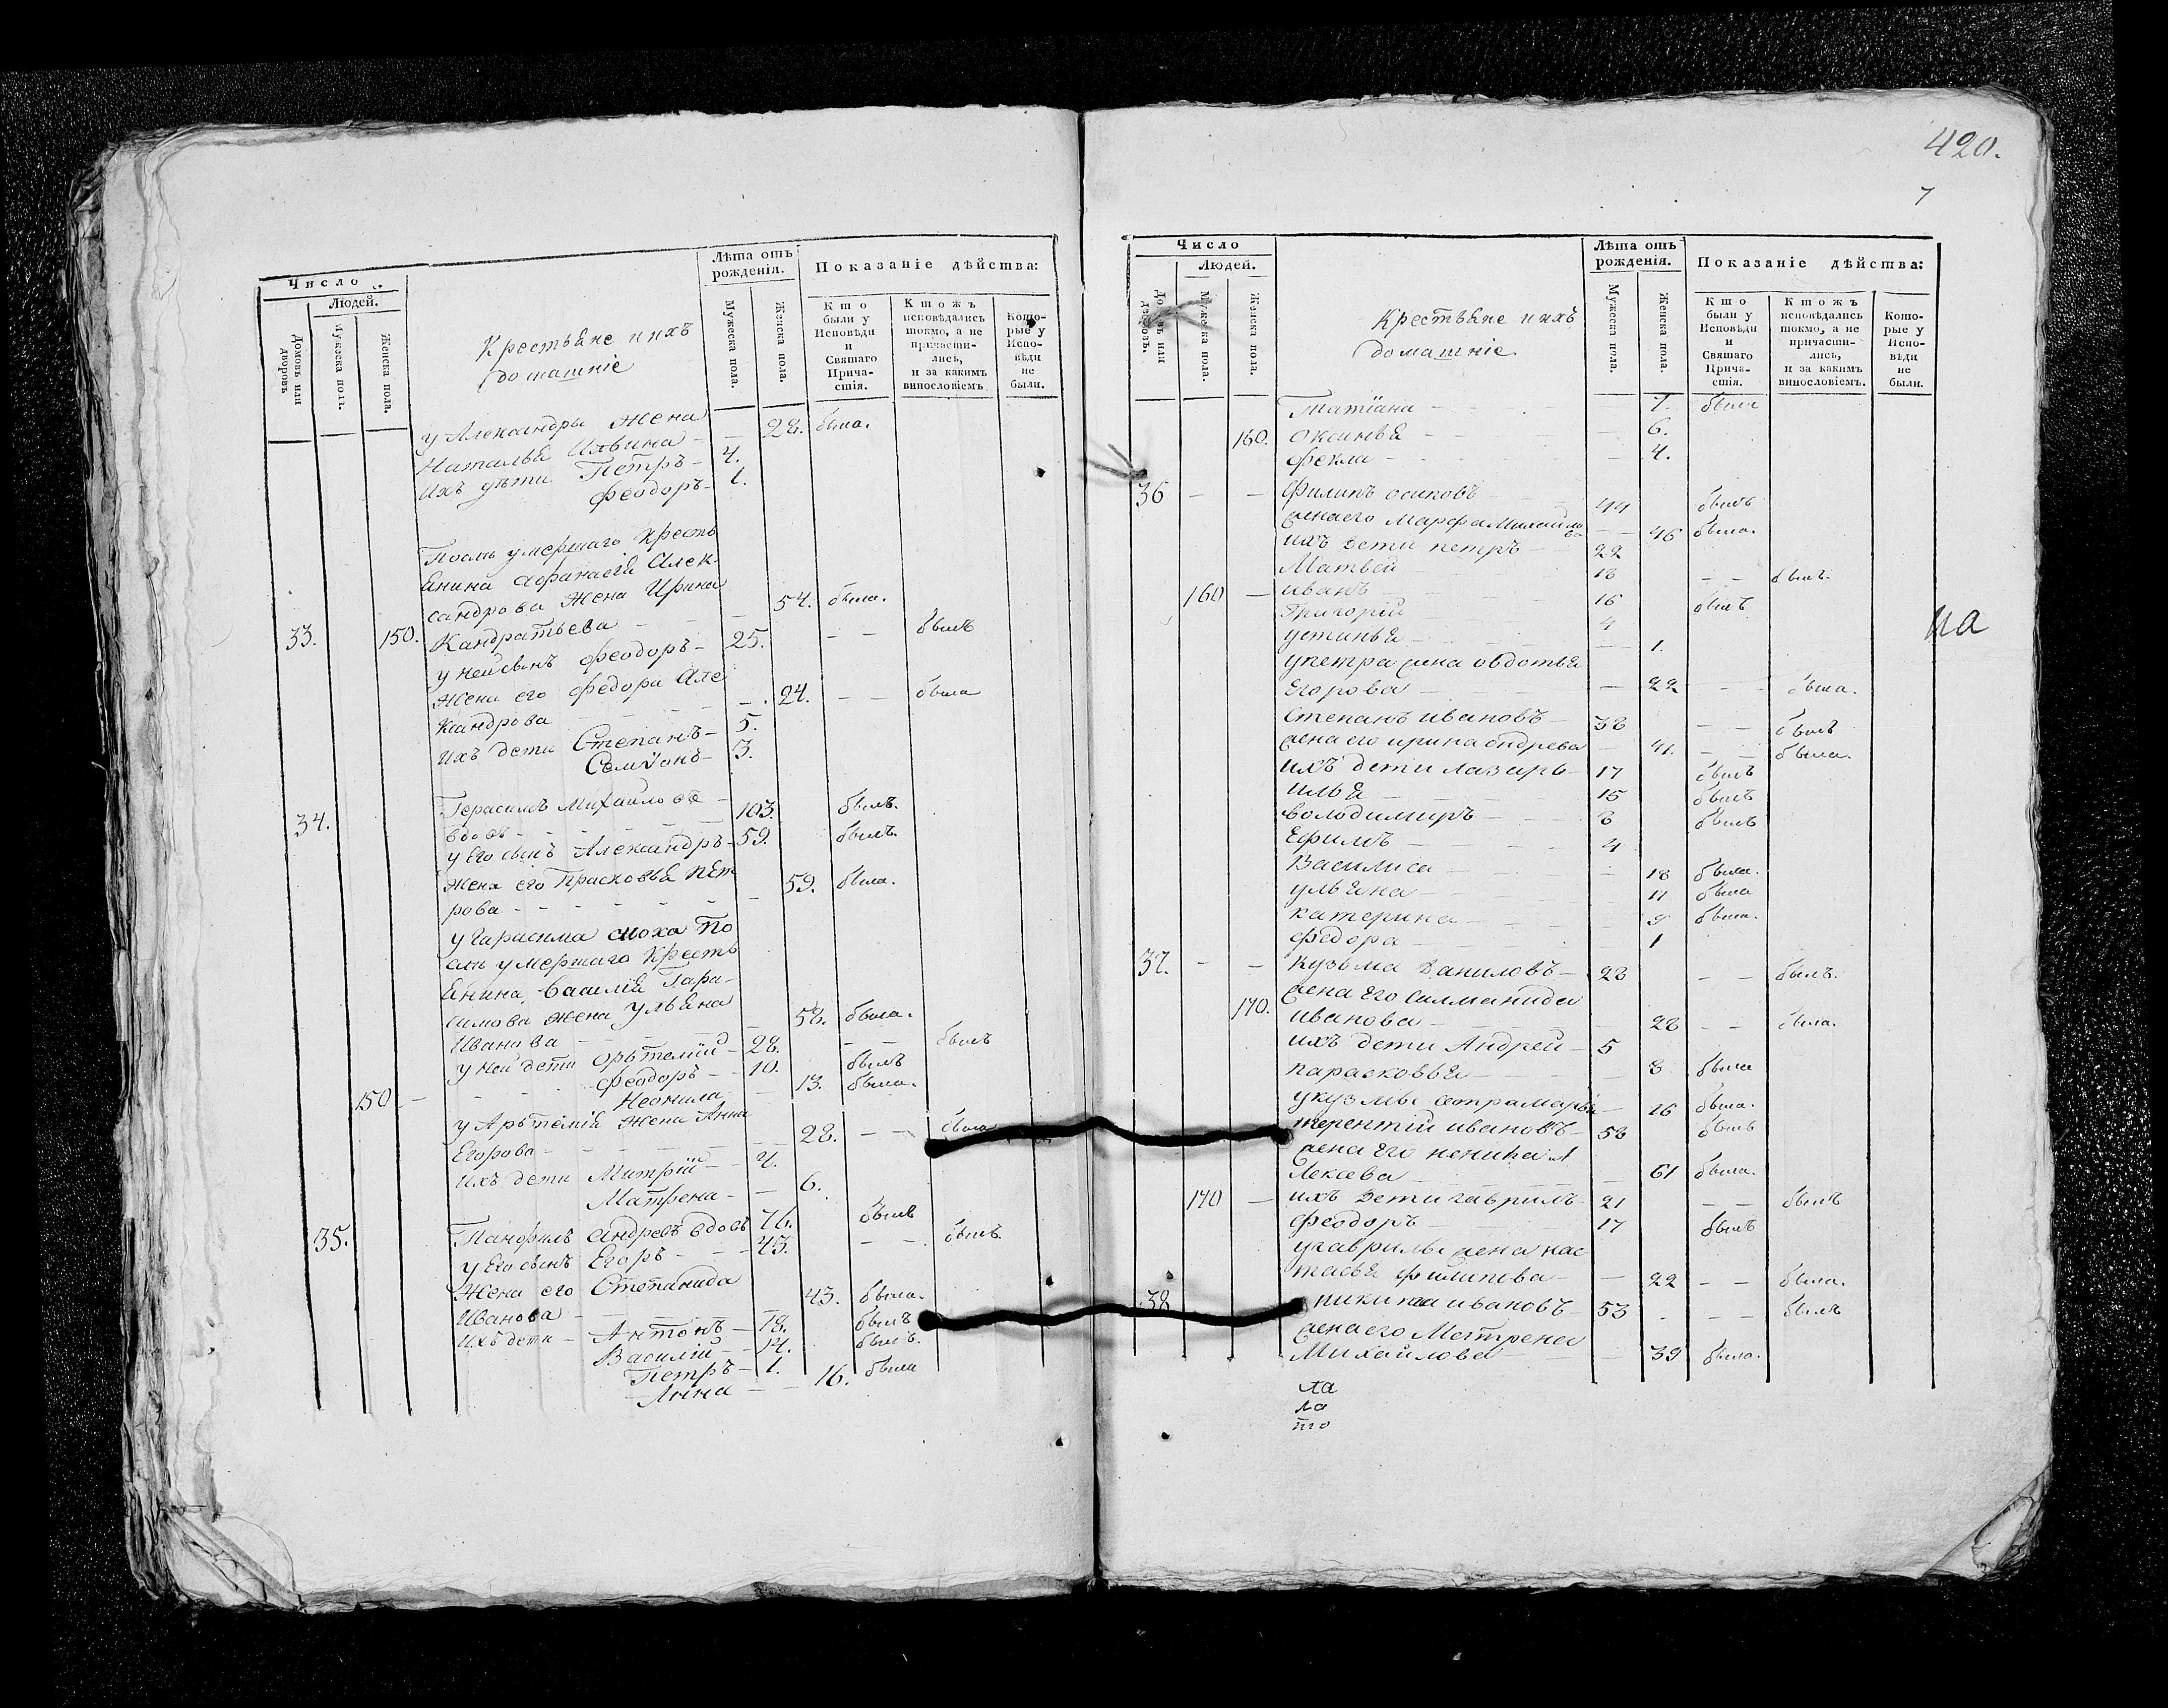 Число
Людей.
Домовъ или дворовъ
Мужеска пола.
Женска пола.
Крестьяне и ихъ
домашніе
Лѣта отъ рожденія.
Мужеска пола.
Женска пола.
Показаніе дѣйства:
Кто были у Исповѣди и Святаго Причастія.
Ктожъ исповѣдались токмо, а не причастились, и за какимъ винословіемъ
Которые у Исповѣди не были.
у Александры Жена
Наталья Ильина — 28. была.
Ихъ дѣти Петръ — 4.
феодоръ — 1.
Послѣ умершаго Кресть
янина Афанасія Алек
сандрова Жена Ирина
33. 150. Кандратьева — 54. была.
у неи сынъ феодоръ — 25. — — былъ
Жена его федора Але
ксандрова — 24. — — была
ихъ дети Степанъ — 5.
Семионъ — 3.
34. Герасимъ Михаиловъ
вдовъ — 103. былъ.
у Его сынъ Александръ — 59. былъ.
Жена его Прасковья Пет
рова — 59. была.
у Гарасима сноха По
слѣ умершаго Кресть
янина Василія Гара
симова жена Ульяна
Иванова — 58. была.
у Неи дети Орьтеміи — 28. — — былъ
феодоръ — 10. былъ
150 — Неонила — 13. была.
у Арьтемія Жена Анна
Егорова — 28. — — была
Ихъ дети Митріи — 4.
Матрена — 6.
35. Панфилъ Андревъ вдовъ 76. былъ
у Его сынъ Егоръ — 43. — — былъ.
Жена его Степанида
Иванова — 43. была.
Ихъ дети — Антонъ — 18. былъ
Василіи — 14. былъ.
Петръ — 1.
Анна — 16. была
420.
7
Число
Людей.
Домовъ или дворовъ.
Мужеска пола.
Женска пола.
Крестьяне и ихъ
домашніе.
Лѣта отъ рожденія.
Мужеска пола.
Женска пола.
Показаніе дѣйства:
Кто были у Исповѣди и Святаго Причастія.
Ктожъ исповѣдались токмо, а не причастились, и за какимъ винословіемъ.
Которые у Исповѣди не были.
Татіана — 7. была
160. Оксинья — 6.
фекла — 4.
36 — — филипъ осиповъ — 44 былъ
жена его Марфа Михаило
ва — 46 была.
ихъ дети петръ — 22
Матвеи — 18 — — былъ.
160 — иванъ — 16 былъ
Григоріи — 4
устинья — 1.
у петра жена овдотья
Егорова — 22 — — была.
Степанъ ивановъ — 38 — — былъ
жена его ирина ондрева — 41. — — была.
ихъ дети лазарь — 17 былъ
илья — 15 былъ
володимиръ — 8 былъ
Ефимъ — 4
Василиса — 18 была.
ульяна — 11 была
катерина — 9 была.
федора — 1
37. — — Кузьма Даниловъ — 28 — — былъ.
жена Его Салманида
170. иванова — 28 — — была.
ихъ дети Андреи — 5
парасковья — 8 была
у кузмы сестра марья — 16 была.
терентіи ивановъ — 58 былъ
жена Его ненила А
лексева — 61 была.
170 — ихъ дети гаврилъ — 21 — — былъ
феодоръ — 17 былъ
у гаврилы жена нас
тасья филипова — 22 — — была.
38 никита ивановъ — 53 — — былъ
жена его Матрена
Михаилова — 39 была.
на
ла
ла
то